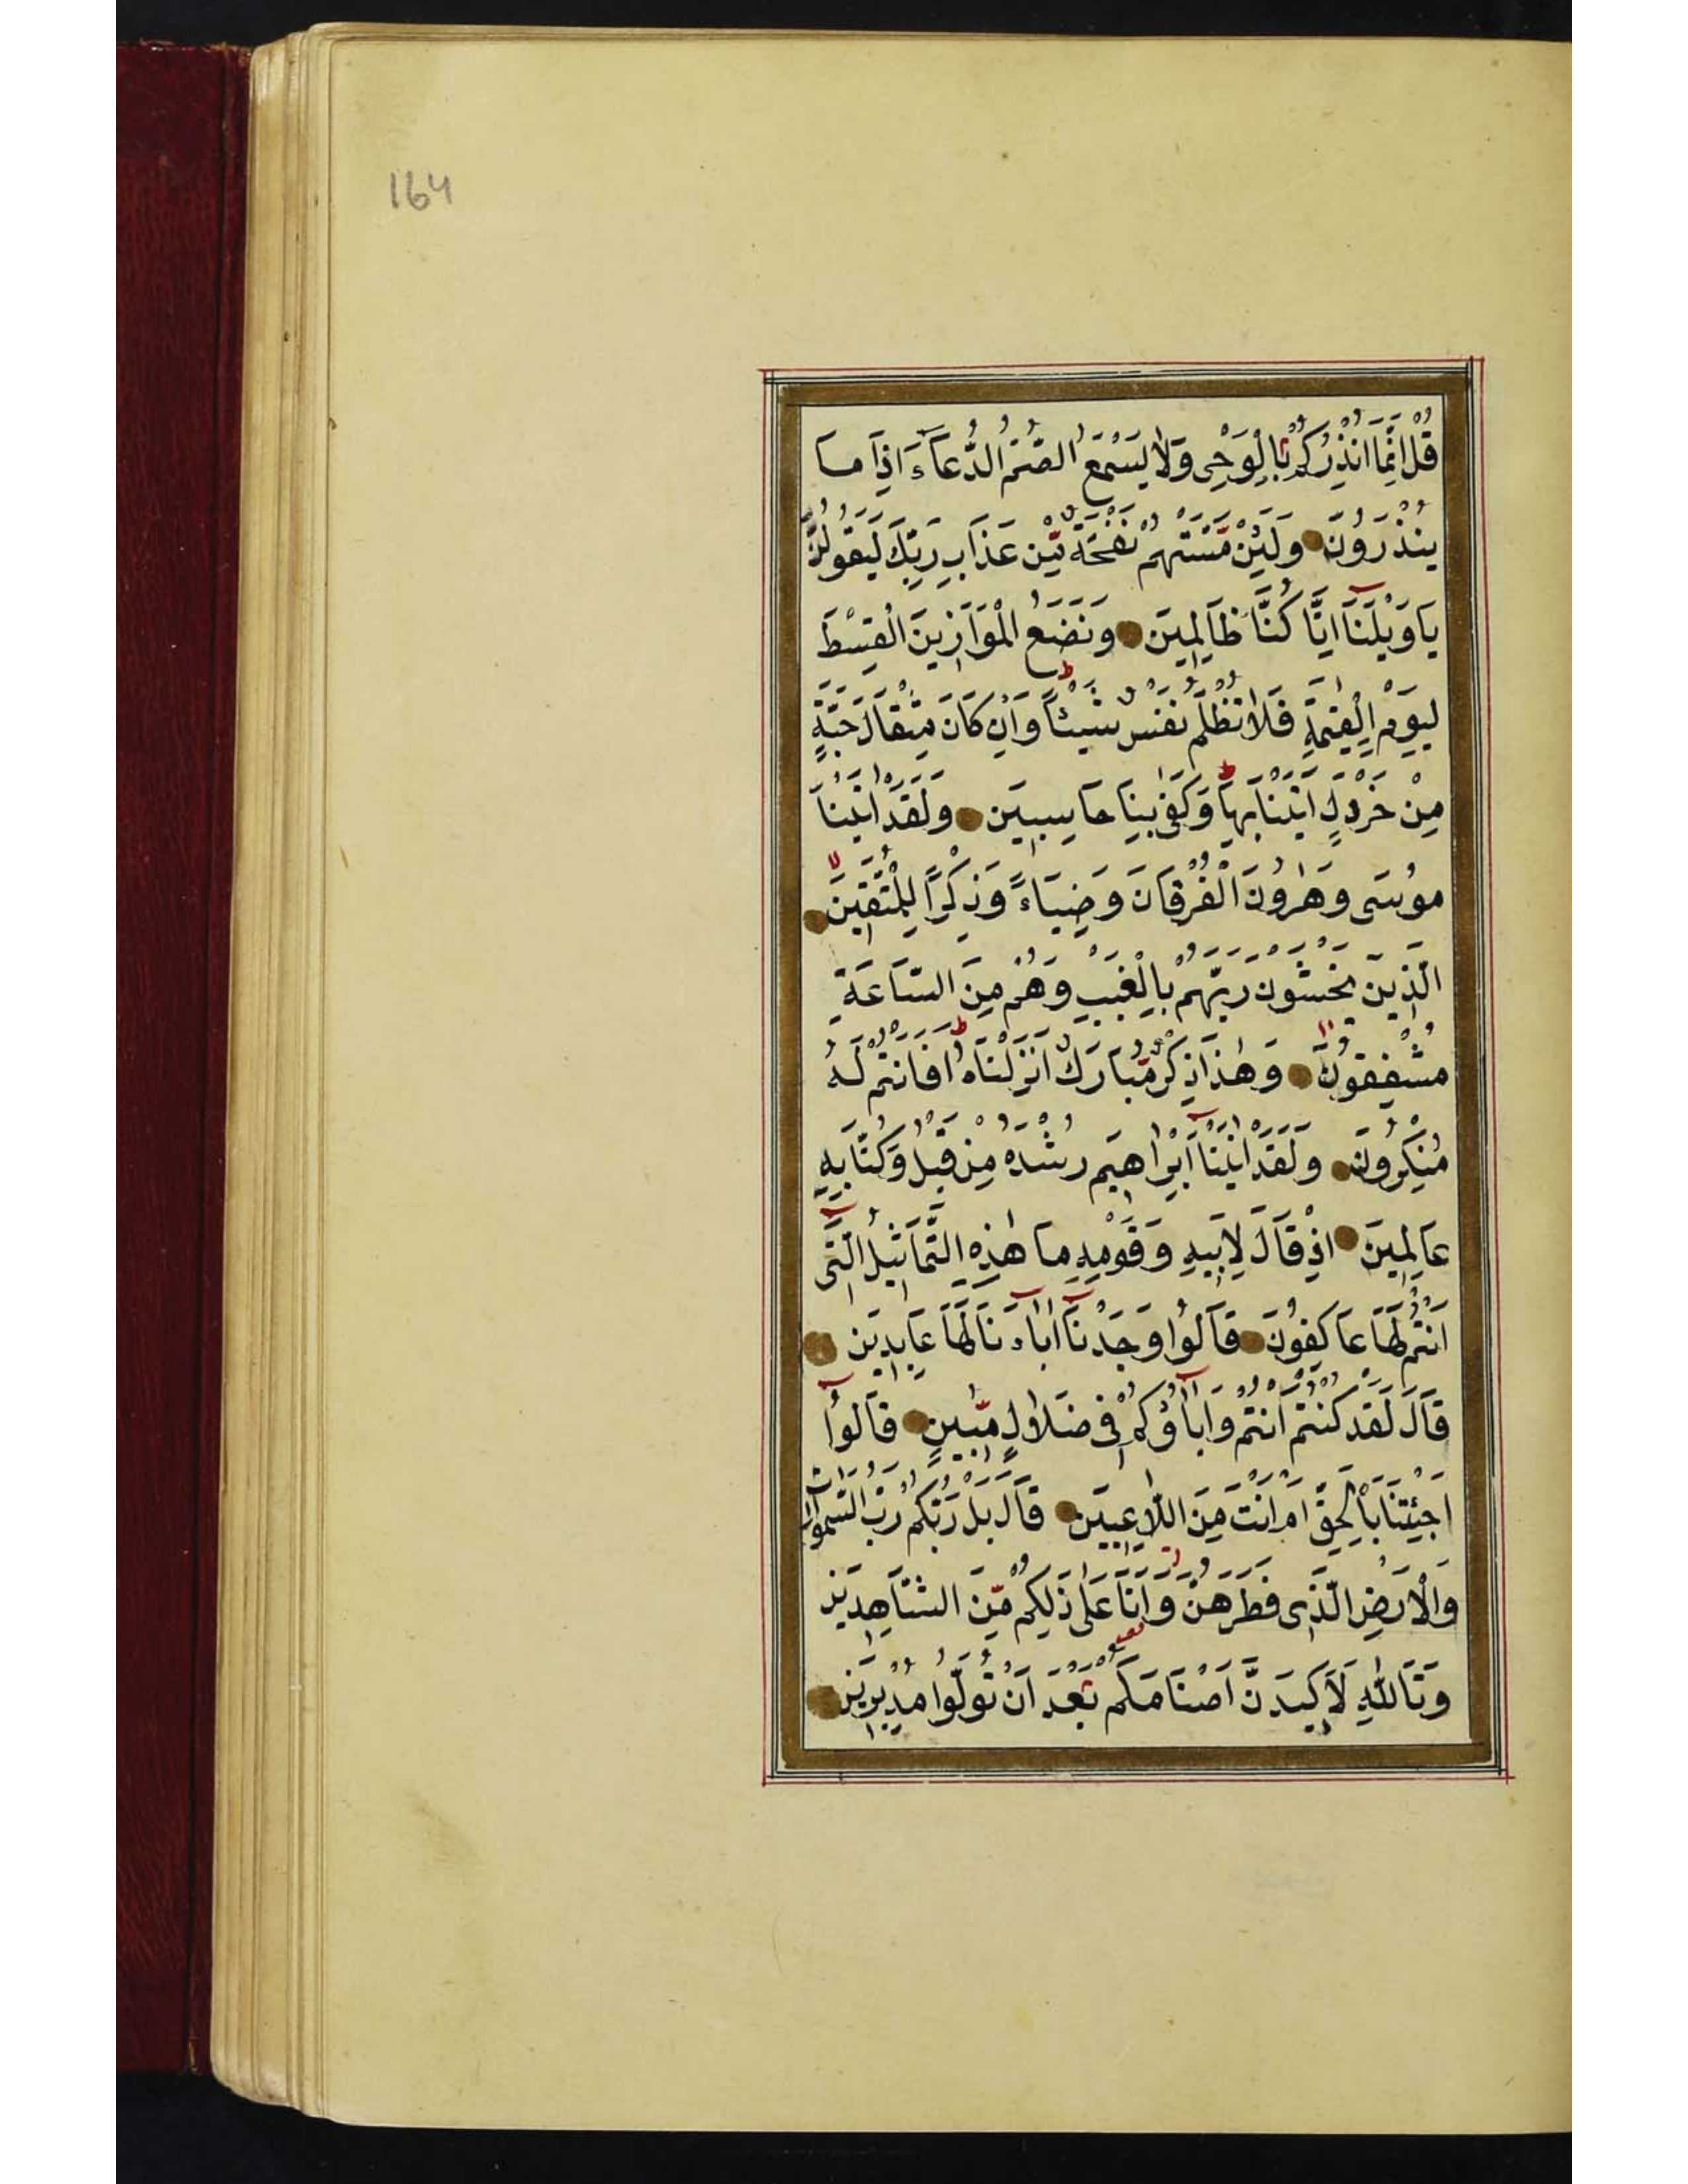 164
قُلْ اِنَّمَآ اُنْذِرُكُمْ بِالْوَحْيِ وَلَا يَسْمَعُ الصُّمُّ الدُّعَآءَ اِذَا مَا
يُنْذَرُونَ وَلَئِنْ مَسَّتْهُمْ نَفْحَةٌ مِّنْ عَذَابِ رَبِّكَ لَيَقُولُنَّ
يَا وَيْلَنَآ اِنَّا كُنَّا ظَالِمِينَ وَنَضَعُ الْمَوَازِينَ الْقِسْطَ
لِيَوْمِ الْقِيٰمَةِ فَلَا تُظْلَمُ نَفْسٌ شَيْئًا ط وَاِنْ كَانَ مِثْقَالَ حَبَّةٍ
مِنْ خَرْدَلٍ اَتَيْنَا بِهَا ط وَكَفٰى بِنَا حَاسِبِينَ وَلَقَدْ اٰتَيْنَا
مُوسٰى وَهٰرُونَ الْفُرْقَانَ وَضِيَآءً وَذِكْرًا لِلْمُتَّقِينَ لا
الَّذِينَ يَخْشَوْنَ رَبَّهُمْ بِالْغَيْبِ وَهُمْ مِنَ السَّاعَةِ
مُشْفِقُونَ وَهٰذَا ذِكْرٌ مُّبَارَكٌ اَنْزَلْنَاهُ ط اَفَاَنْتُمْ لَهُ
مُنْكِرُونَ وَلَقَدْ اٰتَيْنَآ اِبْرَاهِيمَ رُشْدَهُ مِنْ قَبْلُ وَكُنَّا بِهِ
عَالِمِينَ اِذْ قَالَ لِاَبِيهِ وَقَوْمِهِ مَا هٰذِهِ التَّمَاثِيلُ الَّتِى
اَنْتُمْ لَهَا عَاكِفُونَ قَالُوا وَجَدْنَآ اٰبَآءَنَا لَهَا عَابِدِينَ
قَالَ لَقَدْ كُنْتُمْ اَنْتُمْ وَاٰبَآؤُكُمْ فِى ضَلَالٍ مُّبِينٍ قَالُوٓا
اَجِئْتَنَا بِالْحَقِّ اَمْ اَنْتَ مِنَ اللَّاعِبِينَ قَالَ بَلْ رَبُّكُمْ رَبُّ السَّمٰوَاتِ
وَالْاَرْضِ الَّذِى فَطَرَهُنَّ وَاَنَا عَلٰى ذٰلِكُمْ مِّنَ الشَّاهِدِينَ
وَتَاللّٰهِ لَاَكِيدَنَّ اَصْنَامَكُمْ بَعْدَ اَنْ تُوَلُّوا مُدْبِرِينَ